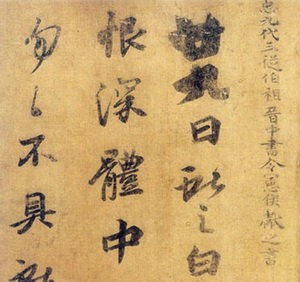 九代三從伯祖晉中書令憲侯獻之書
廿九日獻之白
恨深體中
匆々不具